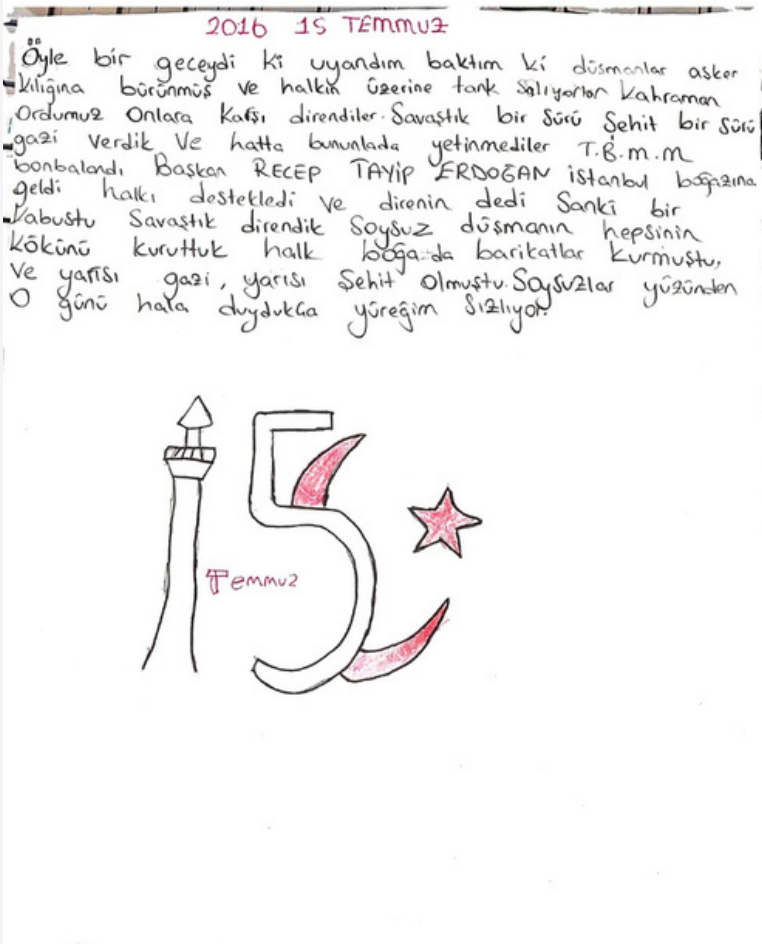 2016 15 TEMMUZ
Öyle bir geceydi ki uyandım baktım ki düşmanlar asker
kılığına bürünmüş ve halkın üzerine tank salıyorlar kahraman
Ordumuz Onlara Karşı direndiler. Savaştık bir Sürü Şehit bir Sürü
gazi verdik Ve hatta bununlada yetinmediler T.B.m.m
bonbalandı Başkan RECEP TAYİP ERDOĞAN istanbul boğazına
geldi halkı destekledi ve direnin dedi Sanki bir
Kabustu Savaştık direndik Soysuz düşmanın hepsinin
kökünü kuruttuk halk boğazda barikatlar kurmuştu,
Ve yarısı gazi, yarısı Şehit Olmuştu. Soysuzlar yüzünden
O günü hala duydukça yüreğim Sızlıyor.
15
Temmuz